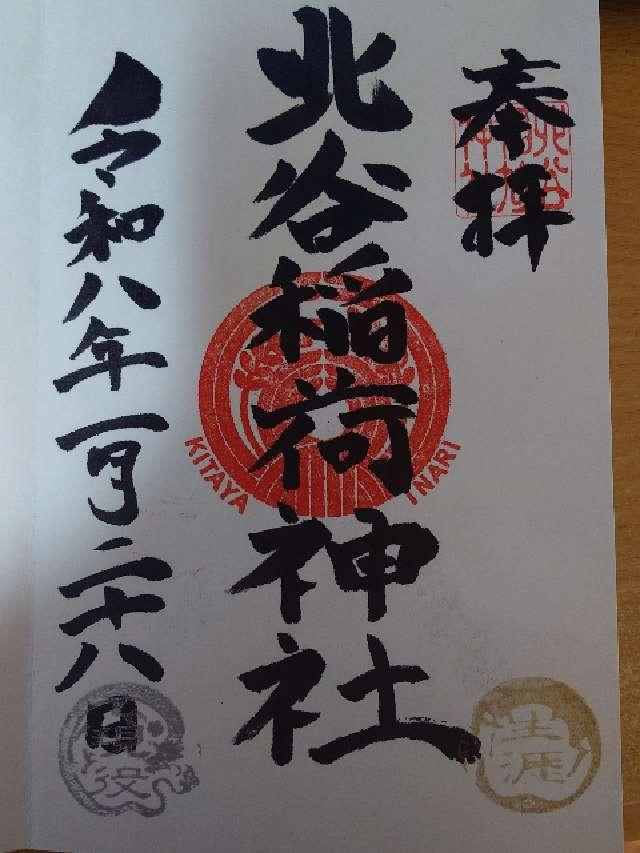 奉拝
北谷稲荷神社
KITAYA INARI
令和八年一月二十八日